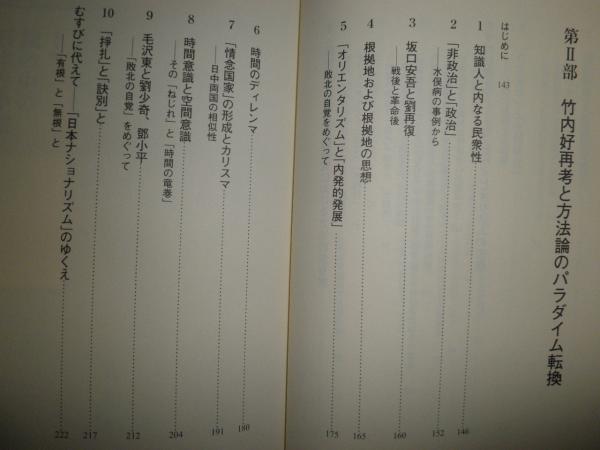 第Ⅱ部　竹内好再考と方法論のパラダイム転換
はじめに　143
1　知識人と内なる民衆性　146
2　「非政治」と「政治」　152
――水俣病の事例から
3　坂口安吾と劉再復　160
――戦後と革命後
4　根拠地および根拠地の思想　165
5　「オリエンタリズム」と「内発的発展」　175
――敗北の自覚をめぐって
6　時間のディレンマ　180
7　「情念国家」の形成とカリスマ　191
――日中両国の相似性
8　時間意識と空間意識　204
――その「ねじれ」と「時間の竜巻」
9　毛沢東と劉少奇、鄧小平　212
――「敗北の自覚」をめぐって
10　「掙扎」と「訣別」と　217
むすびに代えて――「日本ナショナリズム」のゆくえ　222
――「有根」と「無根」と